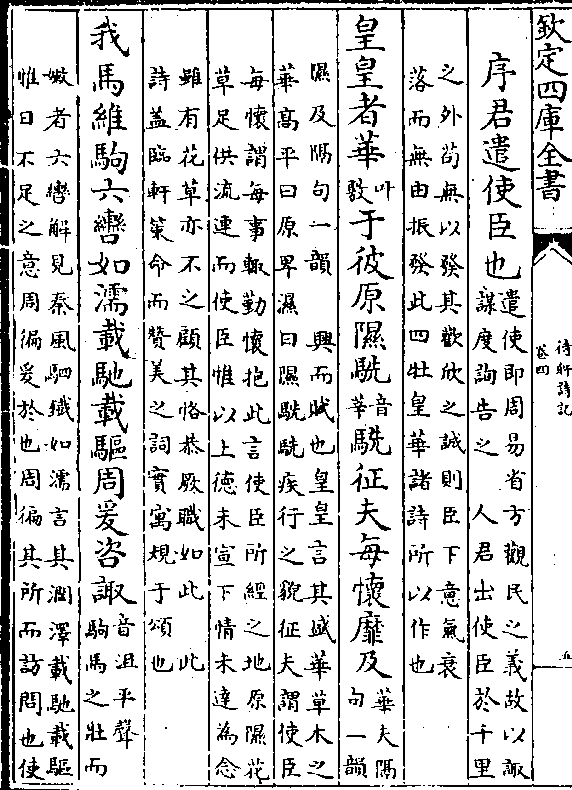 欽定四庫全書
待軒詩記
卷四
五
序君遣使臣也
遣使即周易省方觀民之義故以諏
謀度詢告之 人君出使臣於千里
之外茍無以發其歡欣之誠則臣下意氣衰
落而無由振發此四牡皇華諸詩所以作也
皇皇者華叶敷于彼原隰駪音莘駪征夫每懷靡及
華夫隔
句一韻
隰及隔句一韻 興而賦也皇皇言其盛華草木之
華髙平曰原畀濕曰隰駪駪疾行之貌征夫謂使臣
每懷謂每事輙勤懷抱此言使臣所經之地原隰花
草足供流連而使臣惟以上德未宣下情未達為念
雖有花草亦不之顧其恪恭厥職如此 此
詩蓋臨軒策命而贊美之詞實寓規于頌也
我馬維駒六轡如濡載馳載驅周爰咨諏
音沮平聲
駒馬之壯而
嫩者六轡解見秦風駟鐵如濡言其潤澤載馳載驅
惟日不足之意周徧爰於也周徧其所而訪問也使